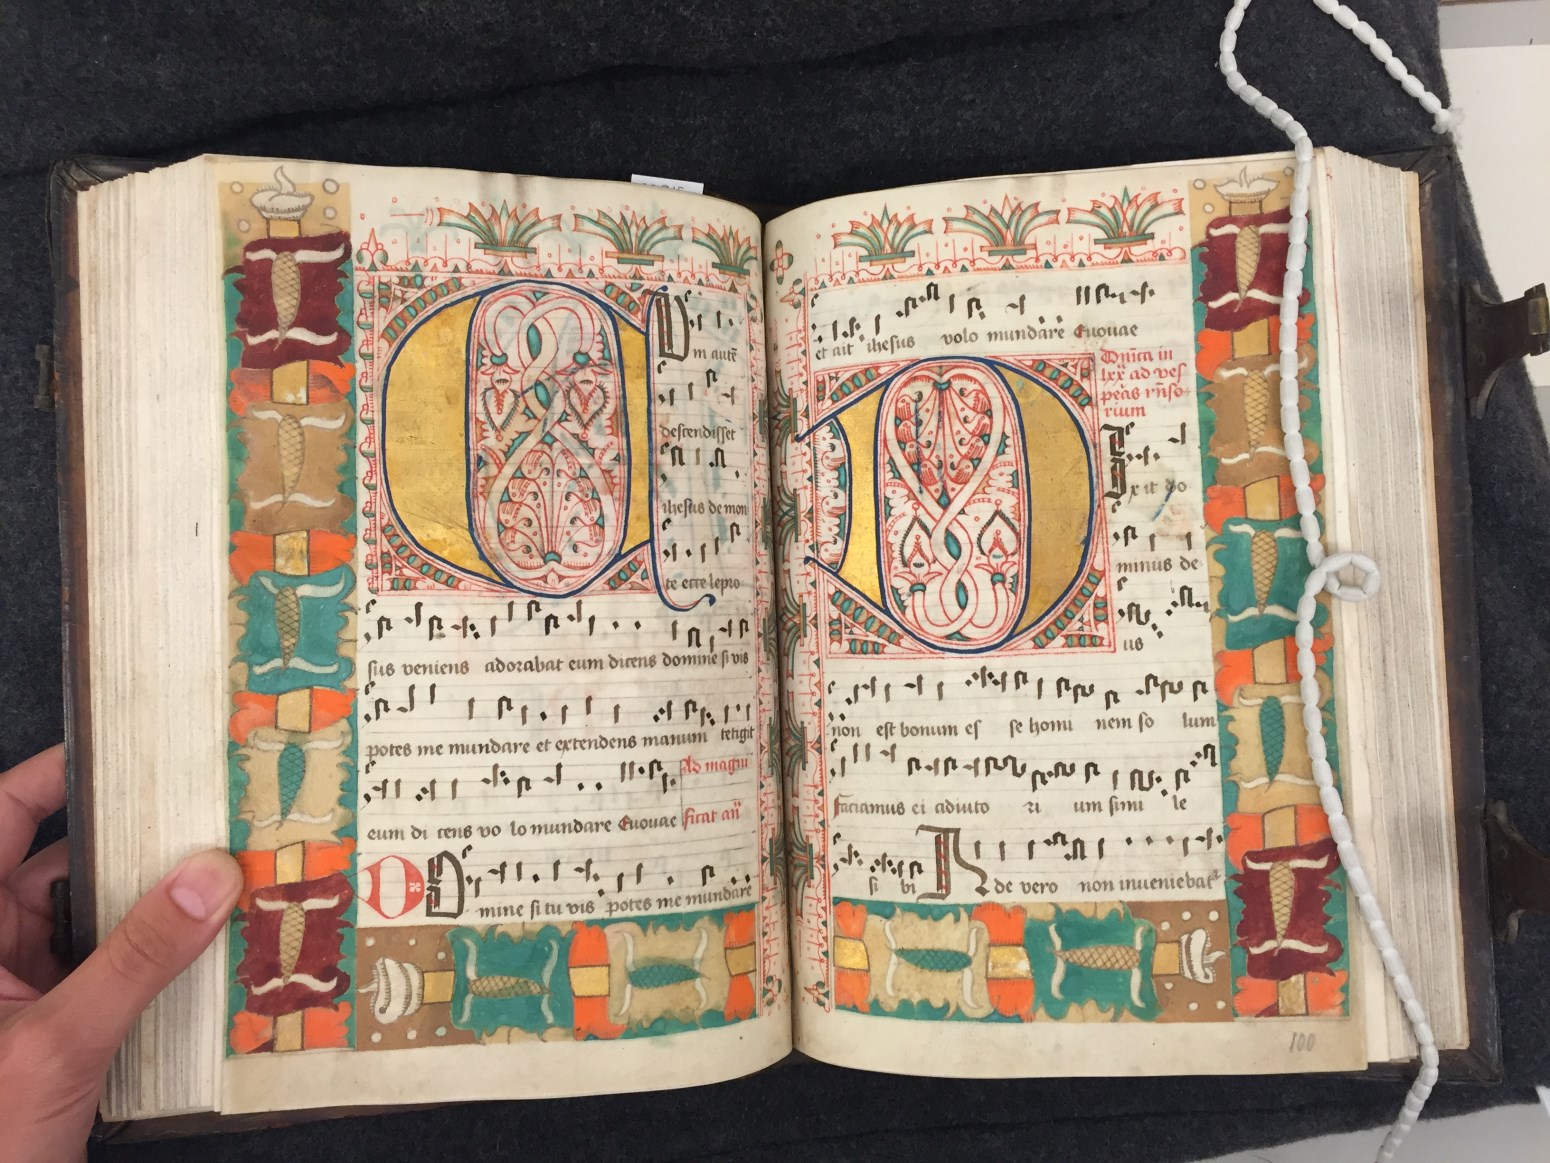 Cum autē
descendisset
ihesus de mon
te ecce lepro
sus veniens adorabat eum dicens domine si vis
potes me mundare et extendens manum tetigit
eum di cens vo lo mundare Euouae
Ad magni
ficat añ
Domine si tu vis potes me mundare
et ait ihesus volo mundare Euouae
Dñica in
lxx ad ves
peras rñso
rium
Dixit do
minus de
us
non est bonum es se homi nem so lum
faciamus ei adiuto ri um simi le
si bi Ade vero non inueniebat
100